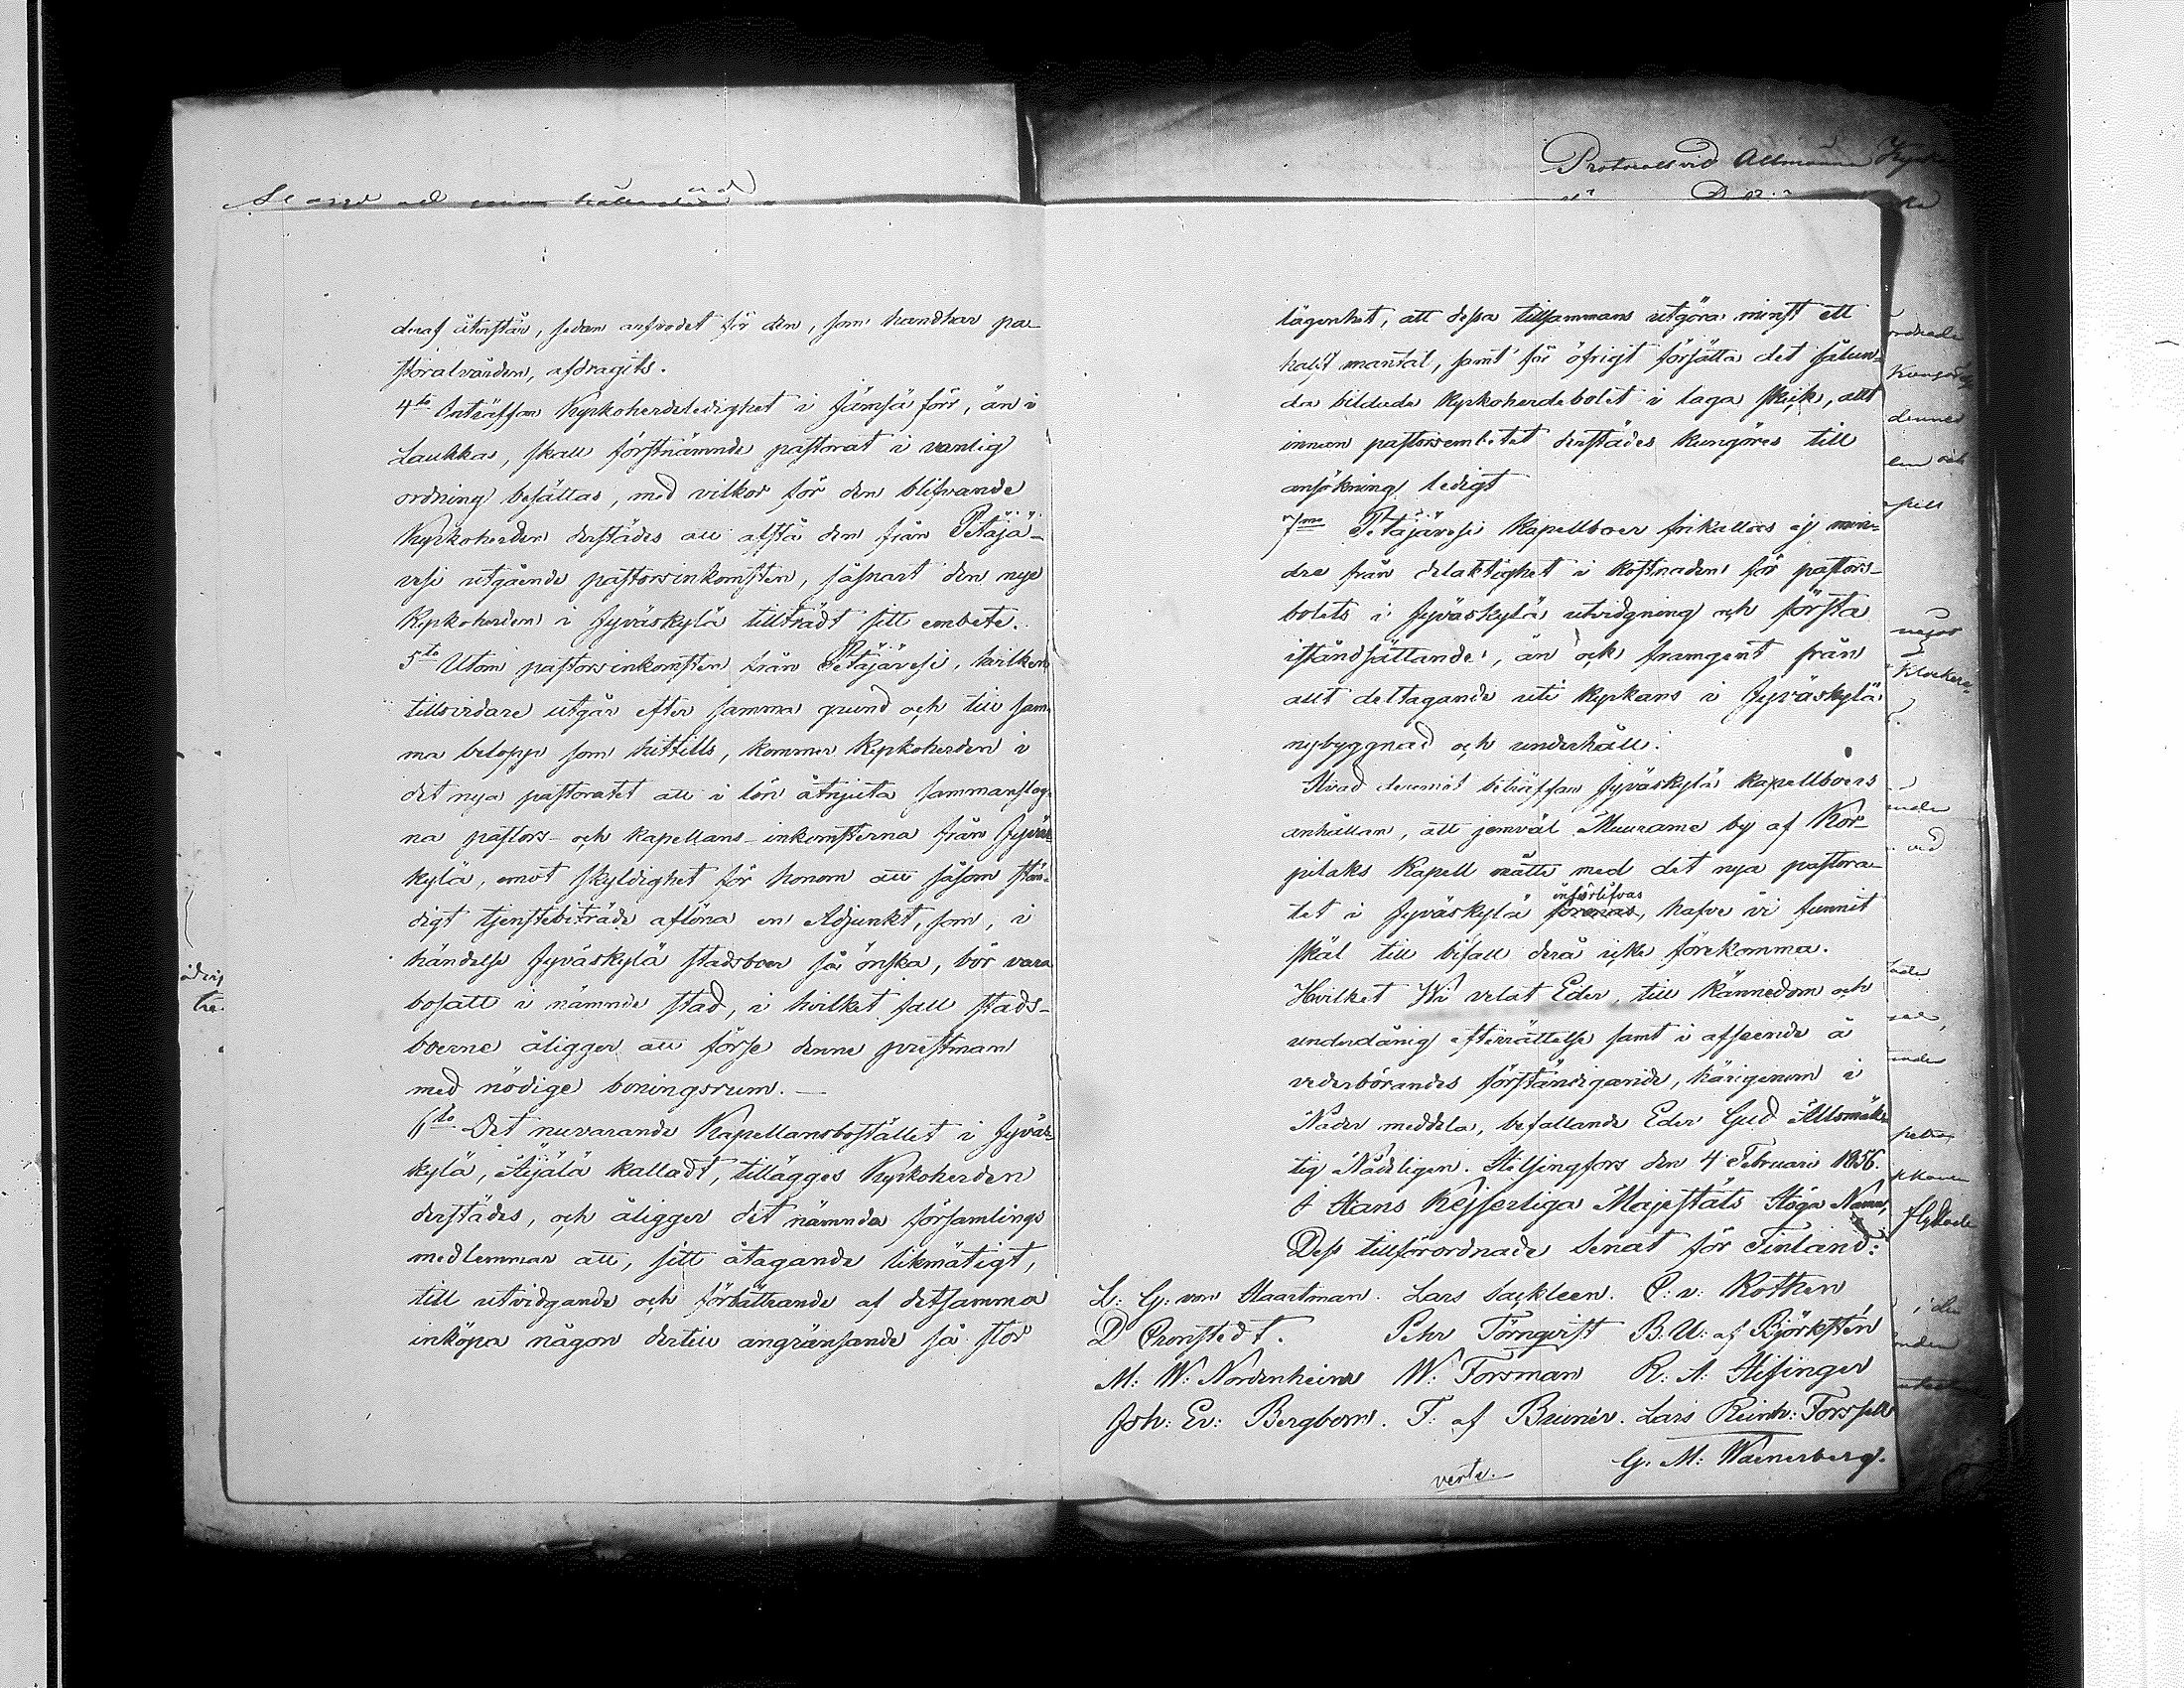 deraf återstår, sedan arfvodet för den, som handhar pa-
storalvården, afdragits.
4to Inträffar Kyrkoherdeledighet i Jämsä förr, än i
Laukkas, skall förstnämnde pastorat i vanlig
ordning besättas, med vilkor för den blifvande
Kyrkoherden derstädes att afstå den från Petäjä-
vesi utgående pastorsinkomsten, såsnart den nye
Kyrkoherden i Jyväskylä tillträdt sitt embete.
5to Utom pastorsinkomsten från Petäjävesi, hvilken
tillsvidare utgår efter samma grund och till sam-
ma belopp som hittills, kommer Kyrkoherden i
det nya pastoratet att i lön åtnjuta sammanslag-
na pastors- och kapellans-inkomsterna från Jyväs-
kylä, emot skyldighet för honom att såsom stän-
digt tjenstebiträde aflöna en Adjunkt, som, i
händelse Jyväskylä stadsboer så önska, bör vara
bosatt i nämnde stad, i hvilket fall stads-
boerne åligger att förse denne prestman
med nödige boningsrum. —
6to Det nuvarande Kapellansbostället i Jyväs-
kylä, Äijälä kalladt, tillägges Kyrkoherden
derstädes, och åligger det nämnda församlings
medlemmar att, sitt åtagande likmätigt,
till utvidgande och förbättrande af detsamma
inköpa någon dertill angränsande så stor
Protocoll vid Allmänna
lägenhet, att dessa tillsammans utgöra minst ett
halft mantal, samt för öfrigt försätta det sålun-
da bildade kyrkoherdebolet i laga skick, allt
innan pastorsembetet derstädes kungöres till
ansökning ledigt
7mo Petäjävesi Kapellboer frikallas ej min-
dre från delaktighet i kostnaden för pastors-
bolets i Jyväskylä utvidgning och första
iståndsättande, än ock framgent från
allt deltagande uti kyrkans i Jyväskylä
nybyggnad och underhåll.
Hvad deremot beträffar Jyväskylä kapellboers
anhållan, att jemväl Muurame by af Kor-
pilaks Kapell måtte med det nya pastora-
införlifvas
tet i Jyväskylä förenas, hafve vi funnit
skäl till bifall derå icke förekomma.
Hvilket Wi velat Eder, till kännedom och
underdånig efterrättelse samt i afseende å
vederbörandes förständigande, härigenom i
Nåder meddela, befallande Eder Gud Allsmäk-
tig Nådeligen. Helsingfors den 4 Februari 1856.
I Hans Kejserliga Majestäts Höga Namn,
Dess tillförordnade Senat för Finland:
L: G: von Haartman. Lars Sackleen. C: v: Kothen
D Cronstedt. Pehr Törnqvist B. U: af Björksten
M: W: Nordenheim W: Forsman R: A: Hisinger
Joh: Er: Bergbom. F: af Brunér. Lars Reinh: Forssell
G. M: Waenerberg.
verte.